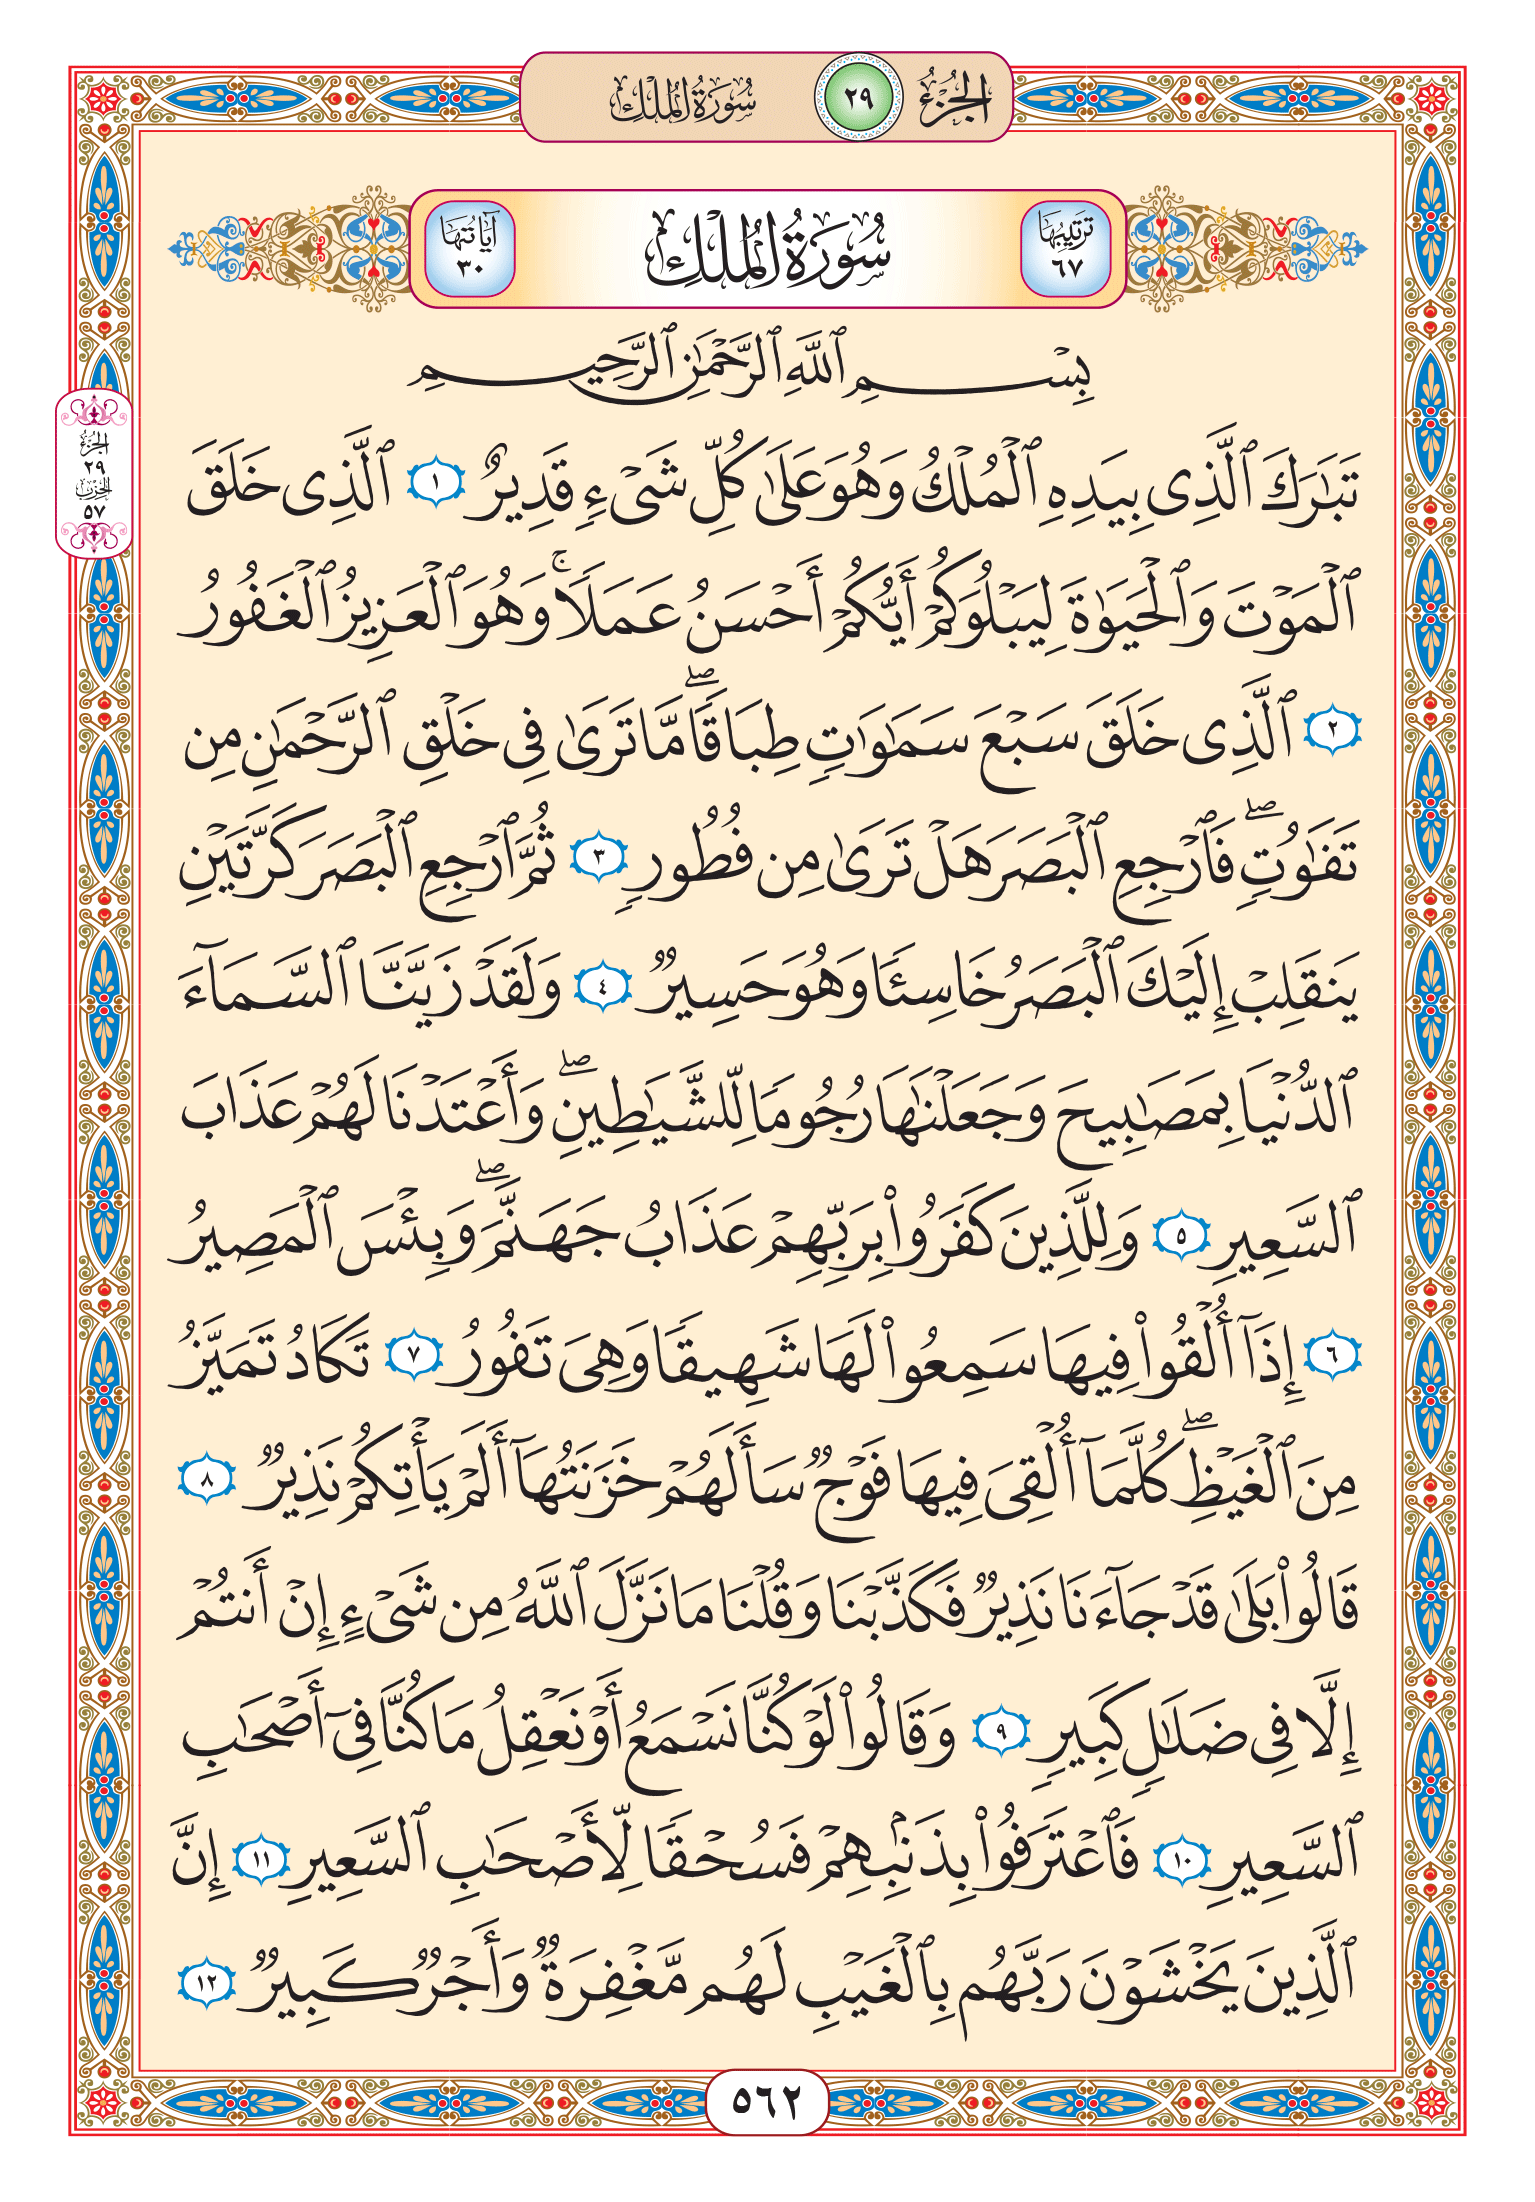 الجزء ٢٩ سورة الملك
ترتيبها ٦٧ سورة الملك آياتها ٣٠
الجزء
٢٩
الحزب
٥٧
بِسْمِ ٱللَّهِ ٱلرَّحْمَٰنِ ٱلرَّحِيمِ
تَبَٰرَكَ ٱلَّذِى بِيَدِهِ ٱلْمُلْكُ وَهُوَ عَلَىٰ كُلِّ شَىْءٍ قَدِيرٌ ١ ٱلَّذِى خَلَقَ
ٱلْمَوْتَ وَٱلْحَيَوٰةَ لِيَبْلُوَكُمْ أَيُّكُمْ أَحْسَنُ عَمَلًا ۚ وَهُوَ ٱلْعَزِيزُ ٱلْغَفُورُ
٢ ٱلَّذِى خَلَقَ سَبْعَ سَمَٰوَٰتٍ طِبَاقًا ۖ مَّا تَرَىٰ فِى خَلْقِ ٱلرَّحْمَٰنِ مِن
تَفَٰوُتٍ ۖ فَٱرْجِعِ ٱلْبَصَرَ هَلْ تَرَىٰ مِن فُطُورٍ ٣ ثُمَّ ٱرْجِعِ ٱلْبَصَرَ كَرَّتَيْنِ
يَنقَلِبْ إِلَيْكَ ٱلْبَصَرُ خَاسِئًا وَهُوَ حَسِيرٌ ٤ وَلَقَدْ زَيَّنَّا ٱلسَّمَآءَ
ٱلدُّنْيَا بِمَصَٰبِيحَ وَجَعَلْنَٰهَا رُجُومًا لِّلشَّيَٰطِينِ ۖ وَأَعْتَدْنَا لَهُمْ عَذَابَ
ٱلسَّعِيرِ ٥ وَلِلَّذِينَ كَفَرُوا۟ بِرَبِّهِمْ عَذَابُ جَهَنَّمَ ۖ وَبِئْسَ ٱلْمَصِيرُ
٦ إِذَآ أُلْقُوا۟ فِيهَا سَمِعُوا۟ لَهَا شَهِيقًا وَهِىَ تَفُورُ ٧ تَكَادُ تَمَيَّزُ
مِنَ ٱلْغَيْظِ ۖ كُلَّمَآ أُلْقِىَ فِيهَا فَوْجٌ سَأَلَهُمْ خَزَنَتُهَآ أَلَمْ يَأْتِكُمْ نَذِيرٌ ٨
قَالُوا۟ بَلَىٰ قَدْ جَآءَنَا نَذِيرٌ فَكَذَّبْنَا وَقُلْنَا مَا نَزَّلَ ٱللَّهُ مِن شَىْءٍ إِنْ أَنتُمْ
إِلَّا فِى ضَلَٰلٍ كَبِيرٍ ٩ وَقَالُوا۟ لَوْ كُنَّا نَسْمَعُ أَوْ نَعْقِلُ مَا كُنَّا فِىٓ أَصْحَٰبِ
ٱلسَّعِيرِ ١٠ فَٱعْتَرَفُوا۟ بِذَنۢبِهِمْ فَسُحْقًا لِّأَصْحَٰبِ ٱلسَّعِيرِ ١١ إِنَّ
ٱلَّذِينَ يَخْشَوْنَ رَبَّهُم بِٱلْغَيْبِ لَهُم مَّغْفِرَةٌ وَأَجْرٌ كَبِيرٌ ١٢
٥٦٢